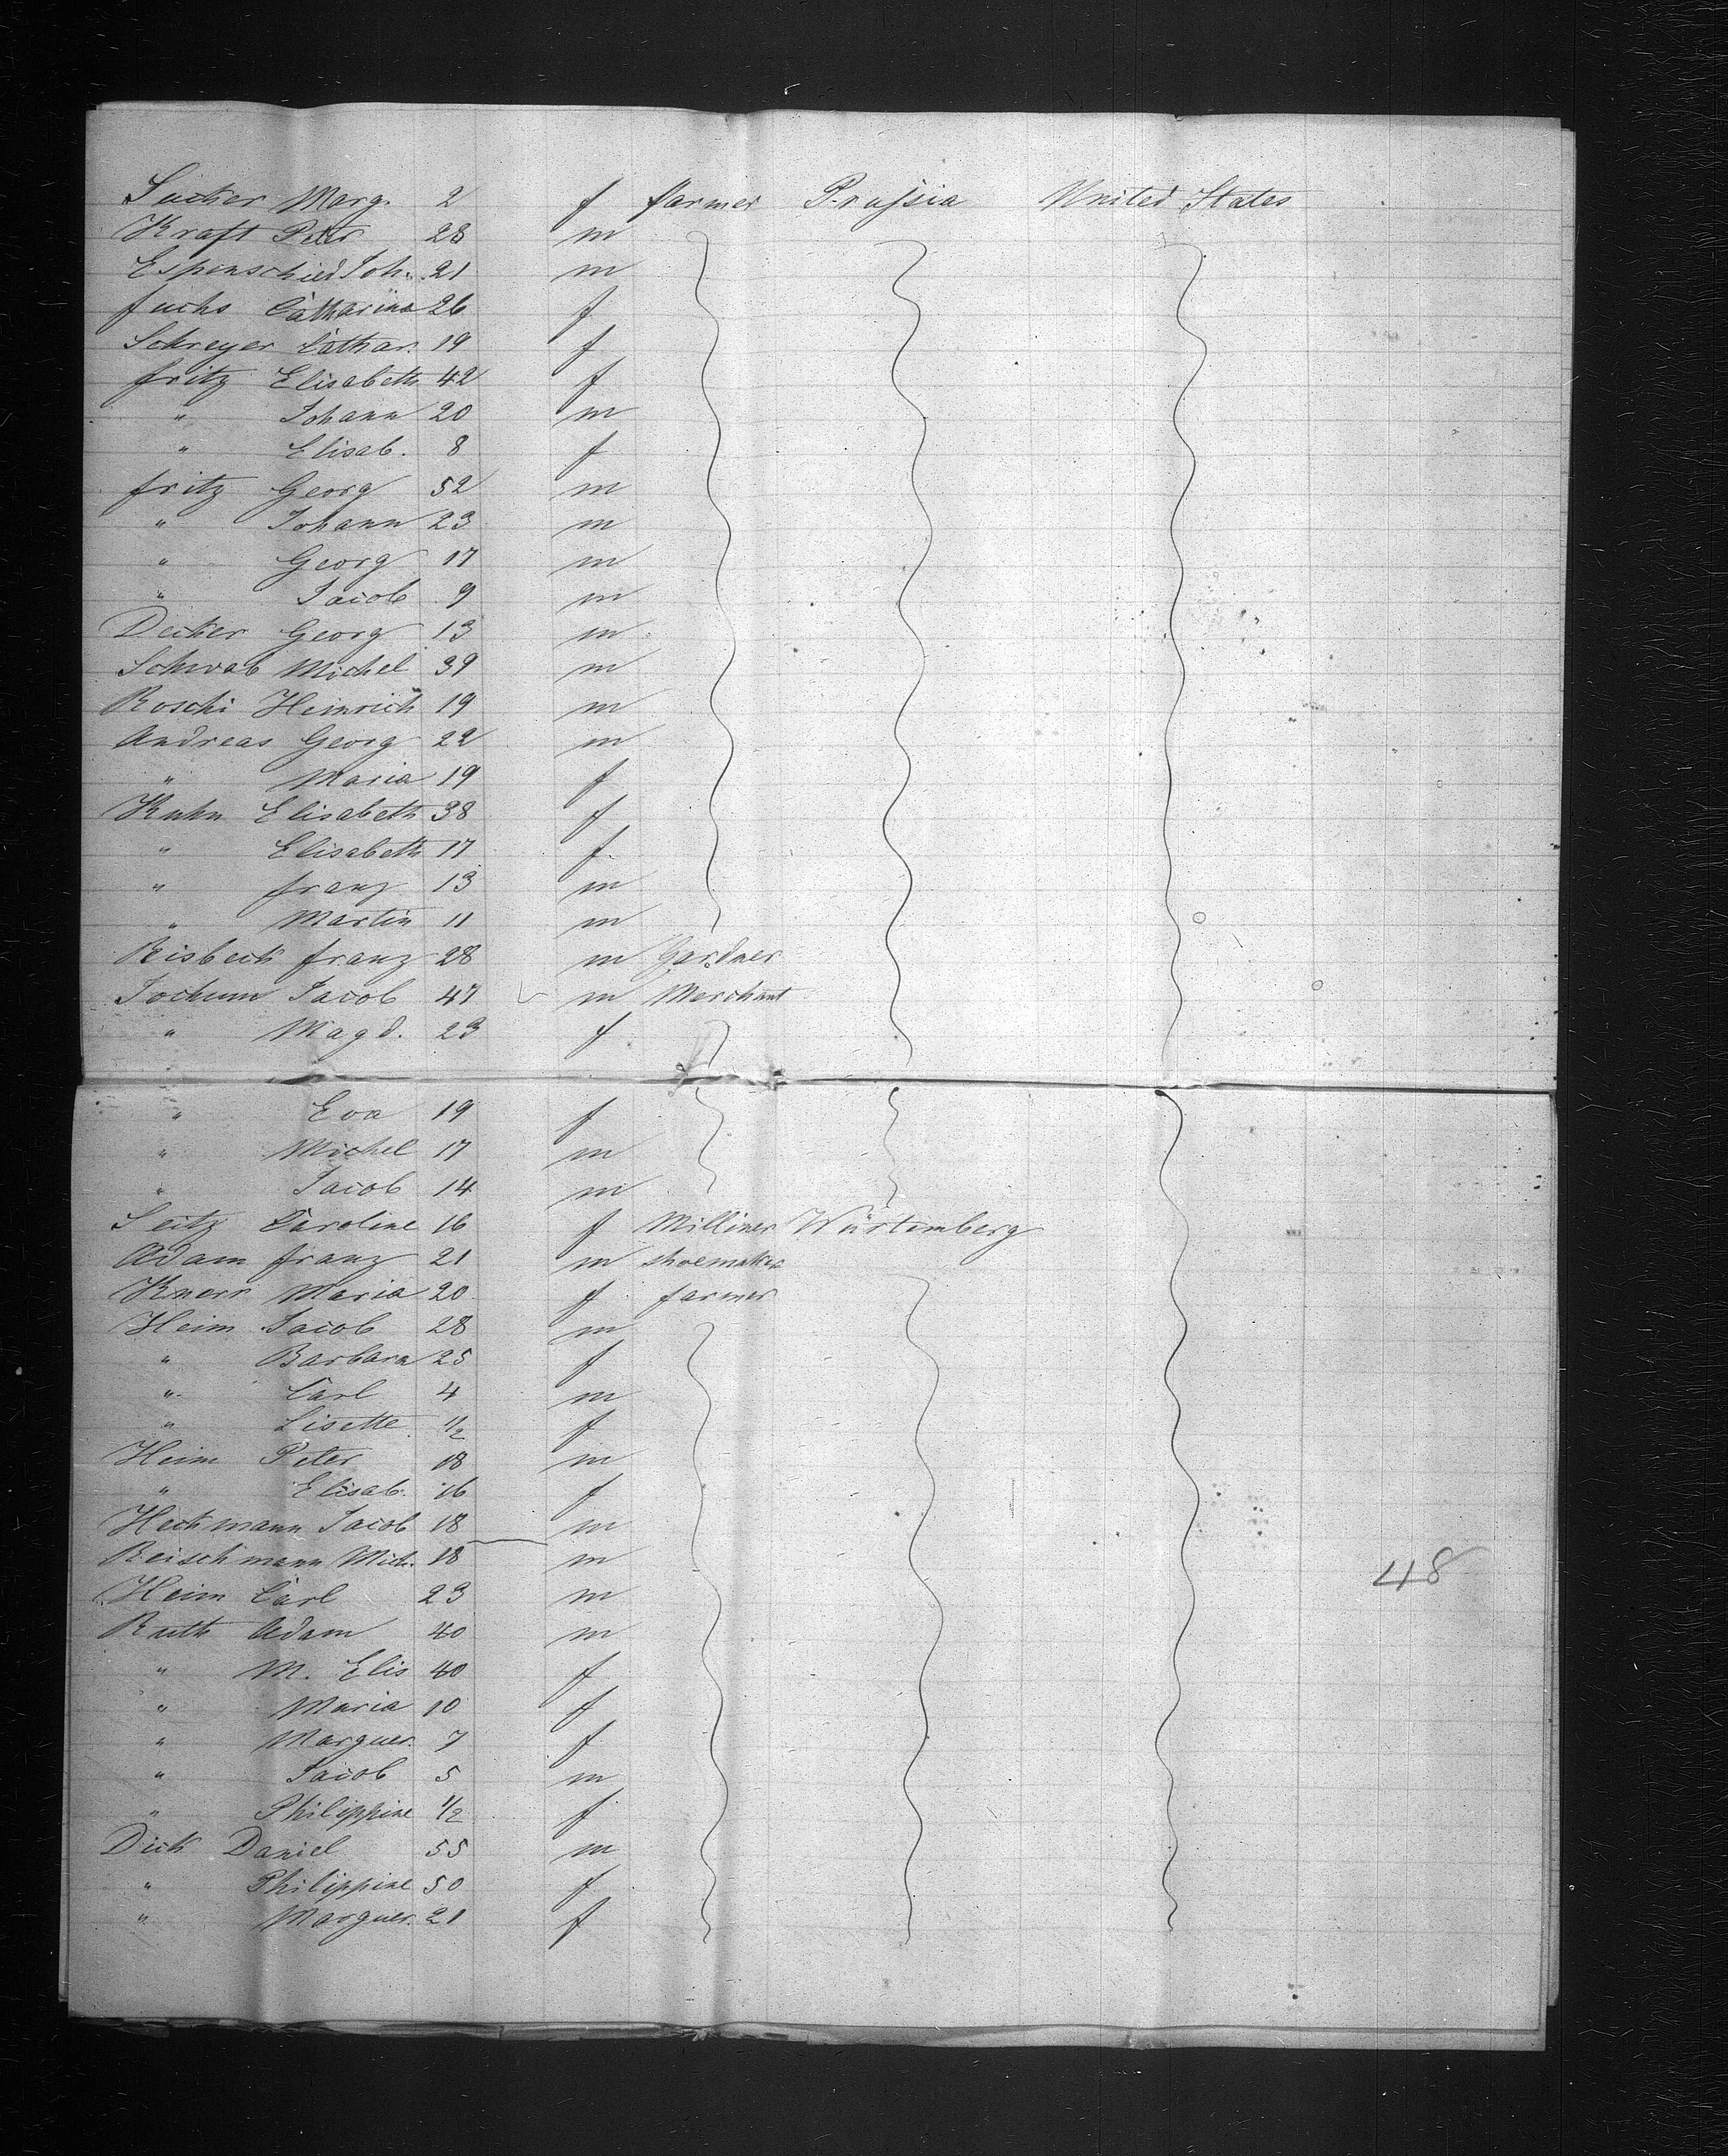 Sucker Marg. 2 f farmer Prussia United States
Kraft Peter 28 m
Espenschied Joh. 21 m
fuchs Catharina 26 f
Schreyer Cathar. 19 f
fritz Elisabeth 42 f
" Johann 20 m
" Elisab. 8 f
fritz Georg 52 m
" Johann 23 m
" Georg 17 m
" Jacob 9 m
Decker Georg 13 m
Schwab Michel 39 m
Roschi Heinrich 19 m
Andreas Georg 22 m
" Maria 19 f
Kuhn Elisabeth 38 f
" Elisabeth 17 f
" franz 13 m
" Martin 11 m
Risbeck franz 28 m Gardner
Jochum Jacob 47 m Merchant
" Magd. 23 f
" Eva 19 f
" Michel 17 m
" Jacob 14 m
Seitz Caroline 16 f Milliner Würtemberg
Adam franz 21 m shoemaker
Knerr Maria 20 f farmer
Heim Jacob 28 m
" Barbara 25 f
" Carl 4 m
" Lisette 1/2 f
Heim Peter 18 m
" Elisab. 16 f
Heckmann Jacob 18 m
Reischmann Mich. 18 m
48
Heim Carl 23 m
Ruth Adam 40 m
" M. Elis 40 f
" Maria 10 f
" Marguer. 7 f
" Jacob 5 m
" Philippine 1/2 f
Dick Daniel 55 m
" Philippine 50 f
" Marguer. 21 f